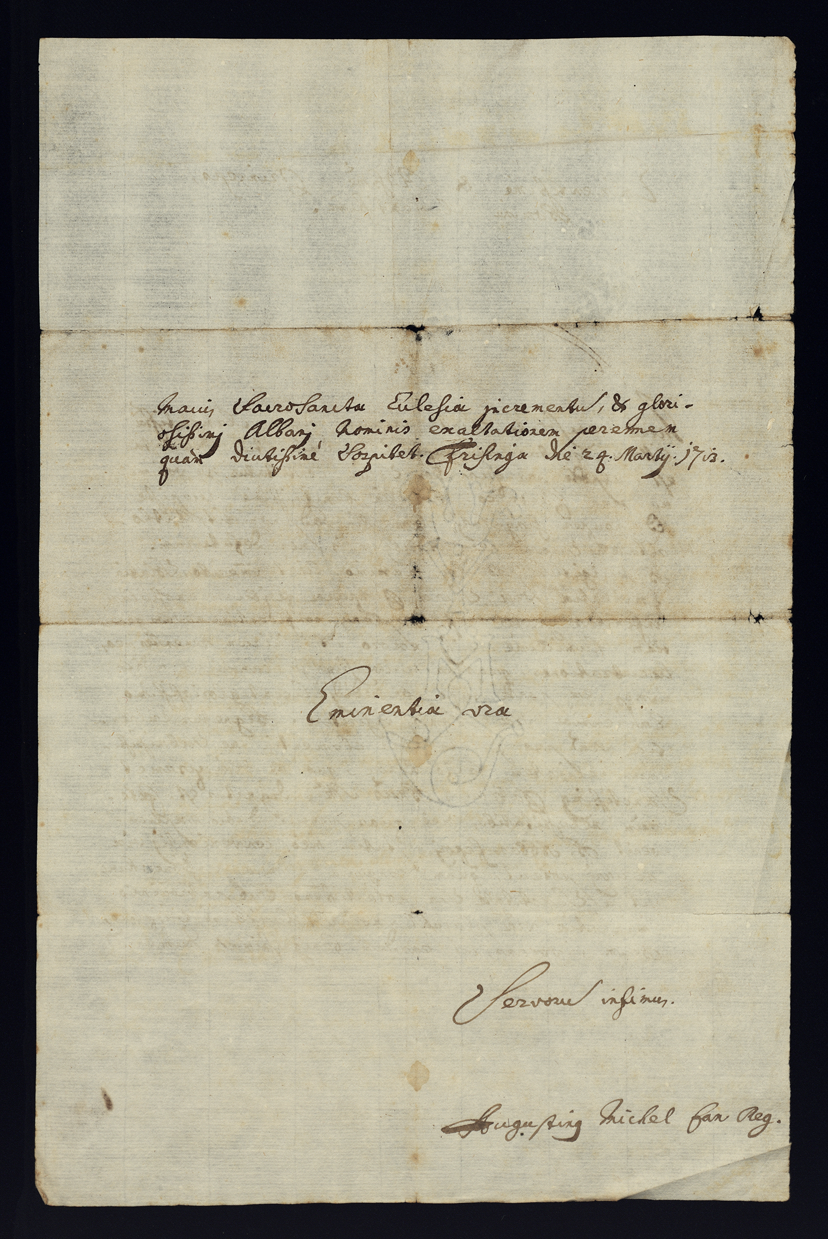 maius SacroSanctae Eclesiae incrementū, & glori-
osissimj Albanj Nominis exaltationem perennem
quam diutissimé Sospitet. Frisingae die 24. Martij. 1713.
Eminentiae vrae
Servorū infimus.
Augustinus Michel Can Reg.